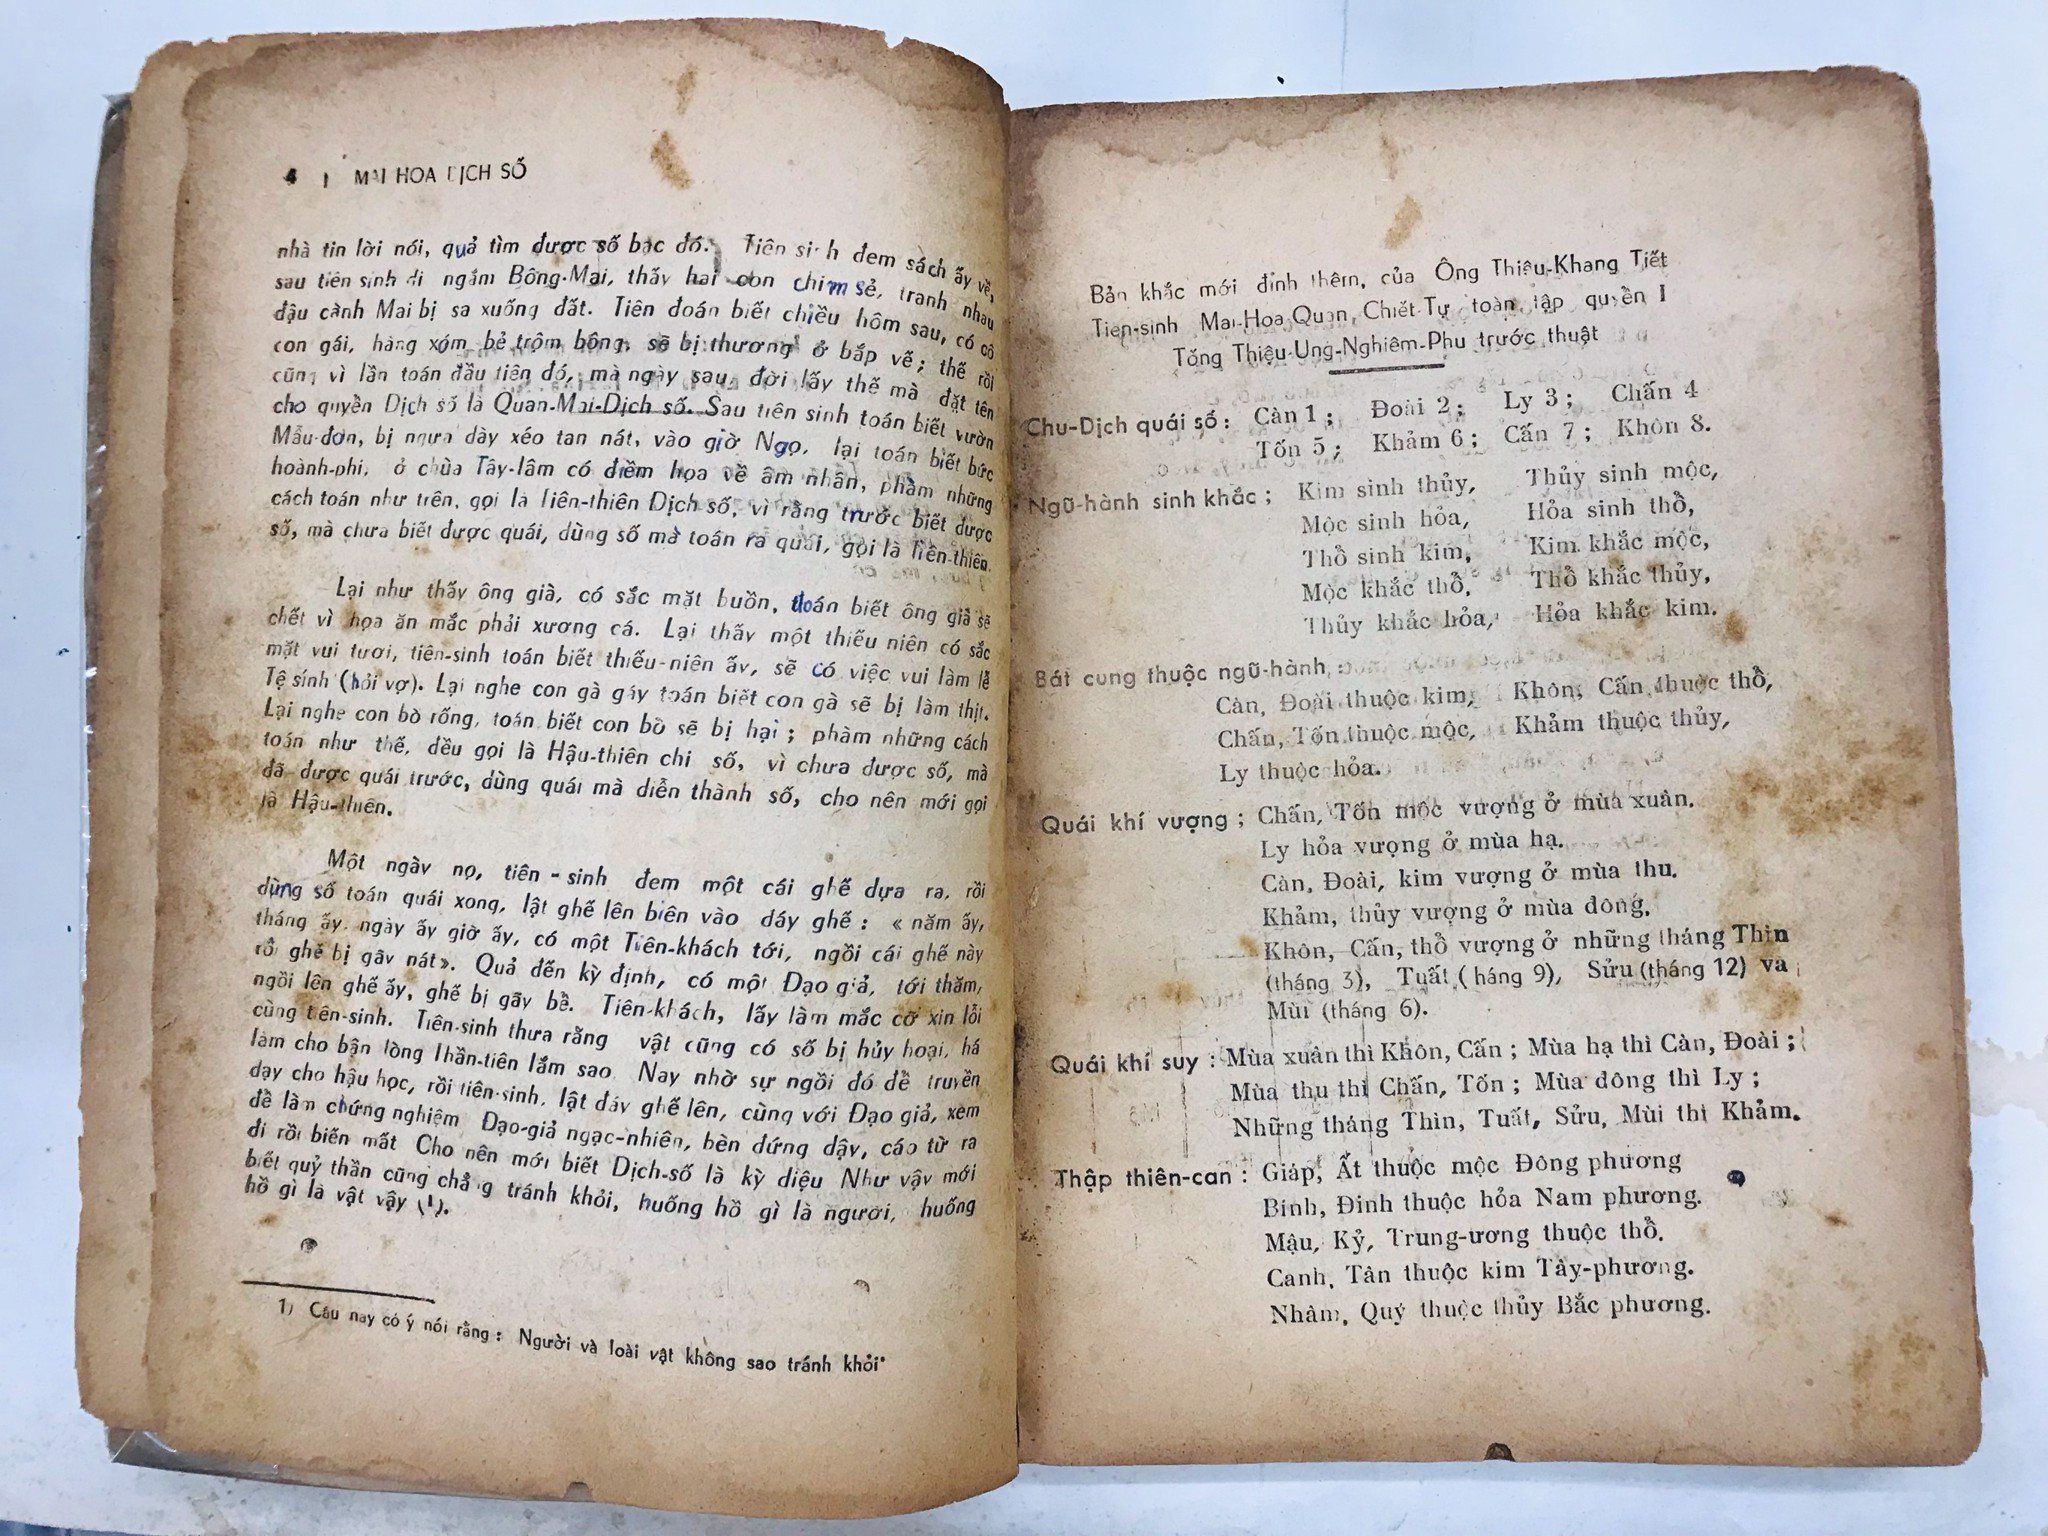 4 | MAI HOA DỊCH SỐ
nhà tin lời nói, quả tìm được số bạc đó. Tiên sinh đem sách ấy về,
sau tiên sinh đi ngắm Bông-Mai, thấy hai con chim sẻ, tranh nhau
đậu cành Mai bị sa xuống đất. Tiên đoán biết chiều hôm sau, có cô
con gái, hàng xóm bẻ trộm bông, sẽ bị thương ở bắp vế; thế rồi
cũng vì lần toán đầu tiên đó, mà ngày sau, đời lấy thế mà đặt tên
cho quyển Dịch số là Quan-Mai-Dịch số. Sau tiên sinh toán biết vườn
Mẫu-đơn, bị ngựa dày xéo tan nát, vào giờ Ngọ, lại toán biết bức
hoành-phi, ở chùa Tây-lâm có điềm họa về âm nhân, phàm những
cách toán như trên, gọi là Tiên-thiên Dịch số, vì rằng trước biết được
số, mà chưa biết được quái, dùng số mà toán ra quái, gọi là Tiên-thiên.
Lại như thấy ông già, có sắc mặt buồn, toán biết ông già sẽ
chết vì họa ăn mắc phải xương cá. Lại thấy một thiếu niên có sắc
mặt vui tươi, tiên-sinh toán biết thiếu-niên ấy, sẽ có việc vui làm lễ
Tệ sính (hỏi vợ). Lại nghe con gà gáy toán biết con gà sẽ bị làm thịt.
Lại nghe con bò rống, toán biết con bò sẽ bị hại; phàm những cách
toán như thế, đều gọi là Hậu-thiên chi số, vì chưa được số, mà
đã được quái trước, dùng quái mà diễn thành số, cho nên mới gọi
là Hậu-thiên.
Một ngày nọ, tiên-sinh đem một cái ghế dựa ra, rồi
dùng số toán quái xong, lật ghế lên biên vào dáy ghế: « năm ấy,
tháng ấy, ngày ấy giờ ấy, có một Tiên-khách tới, ngồi cái ghế này
rồi ghế bị gãy nát». Quả đến kỳ định, có một Đạo giả, tới thăm,
ngồi lên ghế ấy, ghế bị gãy bể. Tiên-khách, lấy làm mắc cỡ xin lỗi
cùng tiên-sinh. Tiên-sinh thưa rằng vật cũng có số bị hủy hoại, há
làm cho bận lòng Thần-tiên lắm sao Nay nhờ sự ngồi đó để truyền
dạy cho hậu học, rồi tiên-sinh, lật đáy ghế lên, cùng với Đạo giả, xem
để làm chứng nghiệm Đạo-giả ngạc-nhiên, bèn đứng dậy, cáo từ ra
đi rồi biến mất Cho nên mới biết Dịch-số là kỳ diệu Như vậy mới
biết quỷ thần cũng chẳng tránh khỏi, huống hồ gì là người, huống
hồ gì là vật vậy (1).
1) Câu nay có ý nói rằng: Người và loài vật không sao tránh khỏi
Bản khắc mới đính thêm, của Ông Thiệu-Khang Tiết
Tiên-sinh Mai-Hoa Quan, Chiết-Tự toàn tập quyển I
Tống Thiệu-Ung-Nghiêm-Phu trước thuật
Chu-Dịch quái số: Càn 1; Đoài 2; Ly 3; Chấn 4
Tốn 5; Khảm 6; Cấn 7; Khôn 8.
Ngũ-hành sinh khắc; Kim sinh thủy, Thủy sinh mộc,
Mộc sinh hỏa, Hỏa sinh thổ,
Thổ sinh kim, Kim khắc mộc,
Mộc khắc thổ, Thổ khắc thủy,
Thủy khắc hỏa, Hỏa khắc kim.
Bát cung thuộc ngũ-hành,
Càn, Đoài thuộc kim, Khôn, Cấn thuộc thổ,
Chấn, Tốn thuộc mộc, Khảm thuộc thủy,
Ly thuộc hỏa.
Quái khí vượng; Chấn, Tốn mộc vượng ở mùa xuân.
Ly hỏa vượng ở mùa hạ.
Càn, Đoài, kim vượng ở mùa thu.
Khảm, thủy vượng ở mùa đông.
Khôn, Cấn, thổ vượng ở những tháng Thìn
(tháng 3), Tuất (háng 9), Sửu (tháng 12) và
Mùi (tháng 6).
Quái khí suy: Mùa xuân thì Khôn, Cấn; Mùa hạ thì Càn, Đoài;
Mùa thu thì Chấn, Tốn; Mùa đông thì Ly;
Những tháng Thìn, Tuất, Sửu, Mùi thì Khảm.
Thập thiên-can: Giáp, Ất thuộc mộc Đông phương
Bính, Đinh thuộc hỏa Nam phương.
Mậu, Kỷ, Trung-ương thuộc thổ.
Canh, Tân thuộc kim Tây-phương.
Nhâm, Quý thuộc thủy Bắc phương.